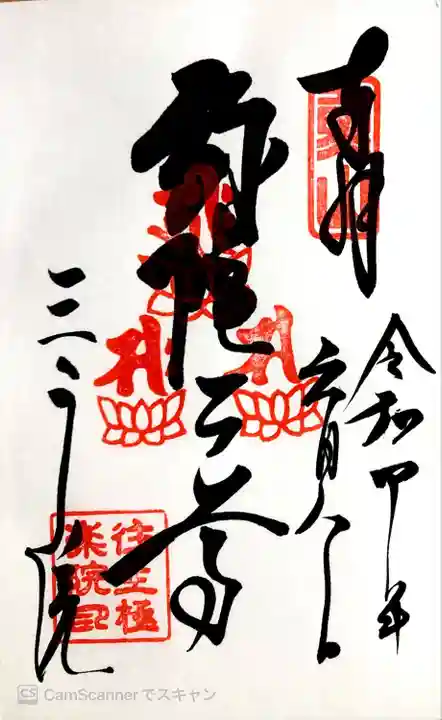 奉拝
令和四年
六月八日
弥陀三尊
三千院
往生極
楽院印
CS CamScannerでスキャン